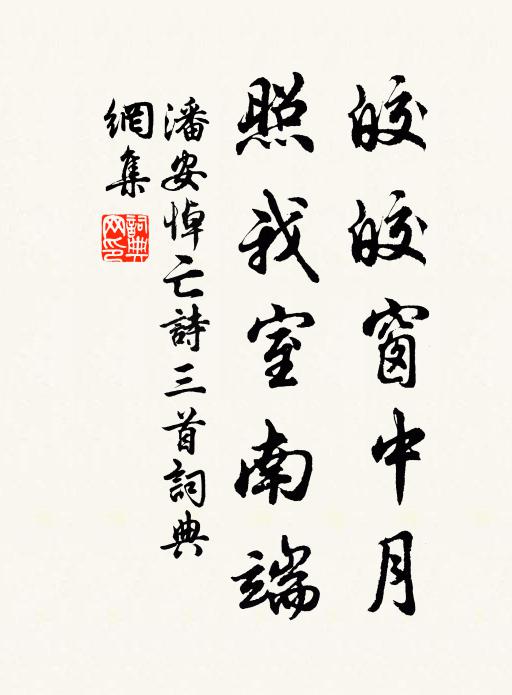 皎皎窗中月
照我室南端
潘安悼亡詩三首詞典
網集
詞典
网印